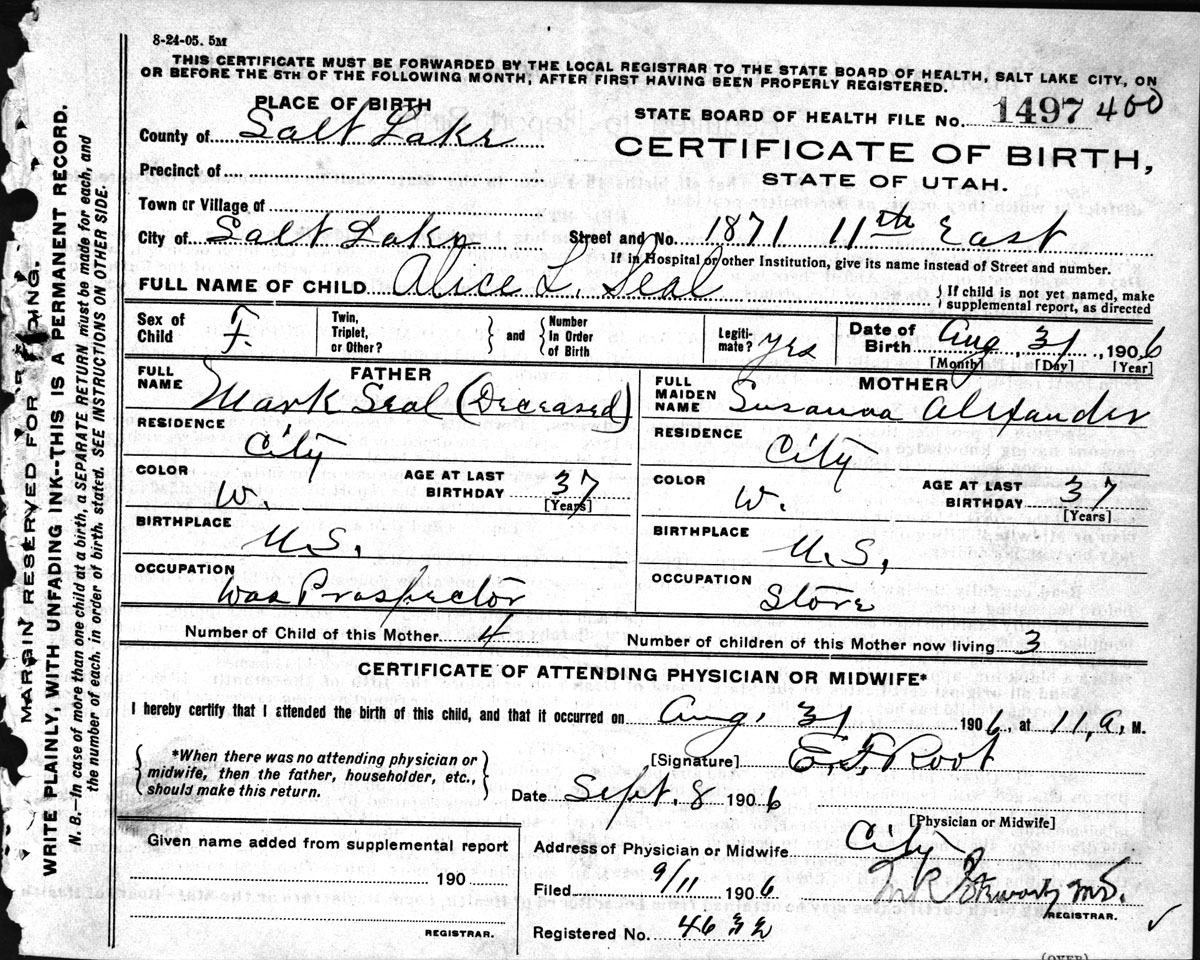 8-24-05. 5M
THIS CERTIFICATE MUST BE FORWARDED BY THE LOCAL REGISTRAR TO THE STATE BOARD OF HEALTH, SALT LAKE CITY, ON
OR BEFORE THE 5TH OF THE FOLLOWING MONTH, AFTER FIRST HAVING BEEN PROPERLY REGISTERED.
PLACE OF BIRTH
STATE BOARD OF HEALTH FILE No. 1497 400
County of Salt Lake
CERTIFICATE OF BIRTH,
Precinct of
STATE OF UTAH.
Town or Village of
City of Salt Lake Street and No. 1871 11th East
If in Hospital or other Institution, give its name instead of Street and number.
FULL NAME OF CHILD Alice L. Seal { If child is not yet named, make supplemental report, as directed
Sex of Child F. Twin, Triplet, or Other? } and { Number In Order of Birth Legiti- mate? yes Date of Birth Aug. 31, 1906
[Month] [Day] [Year]
FATHER
FULL NAME Mark Seal (Deceased)
RESIDENCE City
COLOR W. AGE AT LAST BIRTHDAY 37
[Years]
BIRTHPLACE U.S.
OCCUPATION Was Prospector
MOTHER
FULL MAIDEN NAME Susanna Alexander
RESIDENCE City
COLOR W. AGE AT LAST BIRTHDAY 37
[Years]
BIRTHPLACE U.S.
OCCUPATION Store
Number of Child of this Mother 4 Number of children of this Mother now living 3
CERTIFICATE OF ATTENDING PHYSICIAN OR MIDWIFE*
I hereby certify that I attended the birth of this child, and that it occurred on Aug. 31 1906, at 11, A. M.
{ *When there was no attending physician or
midwife, then the father, householder, etc.,
should make this return. }
[Signature] E. F. Root
Date Sept. 8 1906
[Physician or Midwife]
Given name added from supplemental report
190
REGISTRAR.
Address of Physician or Midwife City
Filed 9/11 1906 M.D.
REGISTRAR.
Registered No. 4632
(OVER)
MARGIN RESERVED FOR
WRITE PLAINLY, WITH UNFADING INK--THIS IS A PERMANENT RECORD.
N. B.—In case of more than one child at a birth, a SEPARATE RETURN must be made for each, and
the number of each, in order of birth, stated. SEE INSTRUCTIONS ON OTHER SIDE.